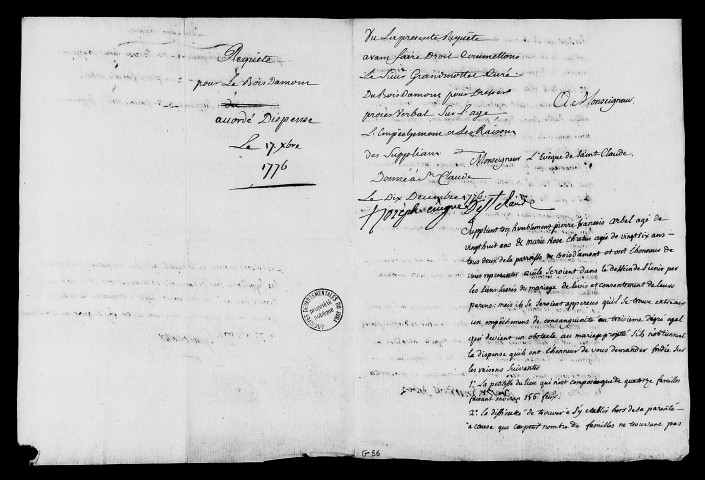 Requête
pour Le Bois Damont
accordé Dispense
Le 17. Xbre
1776
Vu La presente Requête
avant faire Droit Commettons
Le Sieur Grandmottet Curé
Du Bois Damont pour Dresser
procès Verbal Sur l'age,
L'Empêchement et Les Raisons
des Supplians
Donné à St Claude
Le Dix Decembre 1776
† Joseph évêque De St Claude
A Monseigneur
Monseigneur L'Evêque de Saint Claude.
Supplient très humblement pierre françois arbel agé de
vingt huit ans & marie rose agée de vingt six ans
tous deux de la parroisse du boisdamont et ont l'honneur de
vous representer qu'ils seroient dans le dessein de s'unir par
les liens sacrés du mariage de l'avis et consentement de leurs
parens; mais ils se seroient apperçeus qu'il se trouve entr'eux
un empêchement de consanguinité au troisieme degré egal
qui devient un obstacle au mariage projetté s'ils n'obtiennent
la dispense qu'ils ont l'honneur de vous demander fondée sur
les raisons suivantes
1.° La petitesse du lieu qui n'est composé que de quatorze familles
faisant environ 156 feux.
2.° la difficulté de trouver à s'y etablir hors de sa parenté
a cause que ce petit nombre de familles ne trouvant pas
ARCHIVES DEPARTEMENTALES DU JURA
propriété publique
G 56